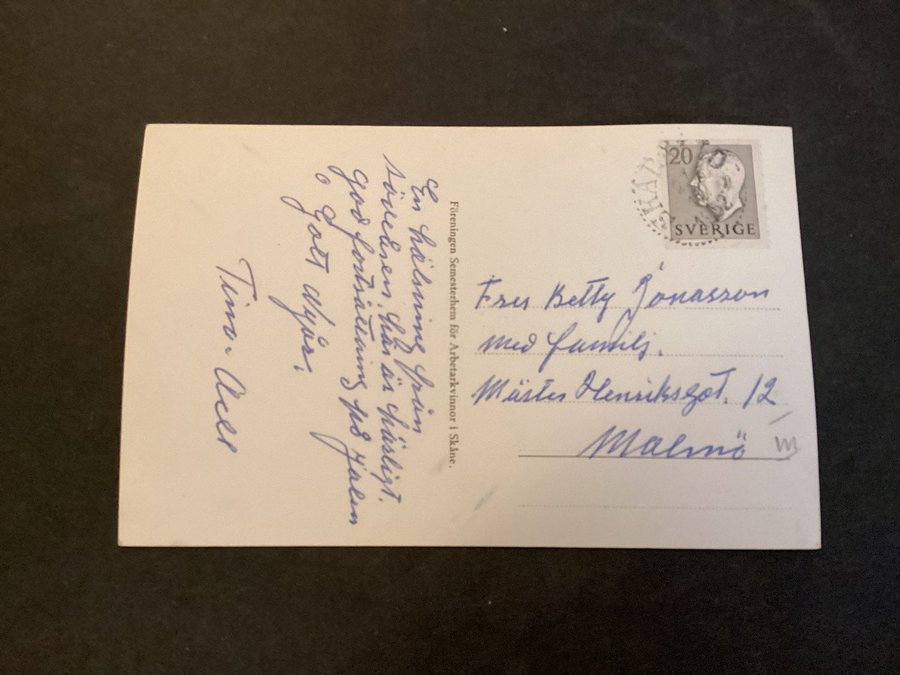 En hälsning från
här är härligt.
god fortsättning på julen
o Gott Nyår.
Tina
Föreningen Semesterhem för Arbetarkvinnor i Skåne.
20
SVERIGE
Fru Betty Jönasson
med familj.
Mäster Henriksgat. 12
Malmö